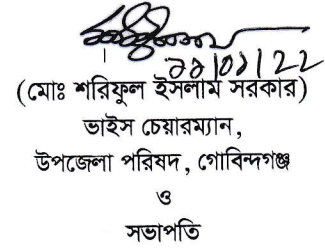 ২২/০১/22
(মোঃ শরিফুল ইসলাম সরকার)
ভাইস চেয়ারম্যান,
উপজেলা পরিষদ, গোবিন্দগঞ্জ
ও
সভাপতি